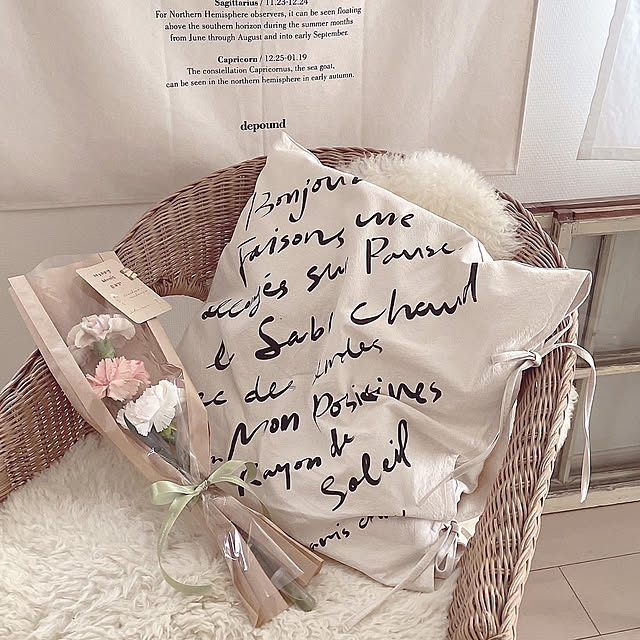 Sagittarius / 11.23-12.24
For Northern Hemisphere observers, it can be seen floating
above the southern horizon during the summer months
from June through August and into early September.
Capricorn / 12.25-01.19
The constellation Capricornus, the sea goat,
can be seen in the northern hemisphere in early autumn.
depound
Bonjour
Faisons une
sur Pause
Sabl Chaud
ec de
Mon Positives
Rayon de
Soleil
Happy